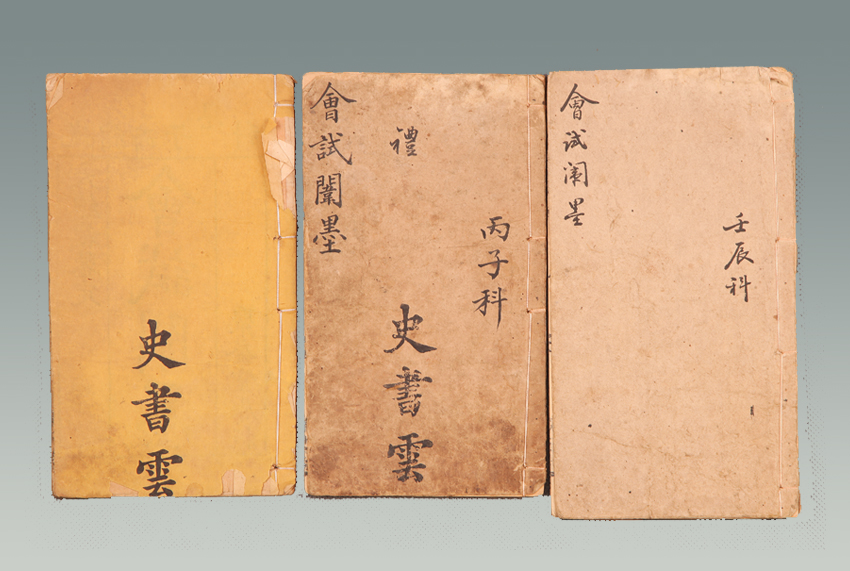 史書雲
會試闈墨
禮
丙子科
史書雲
會試闈墨
壬辰科